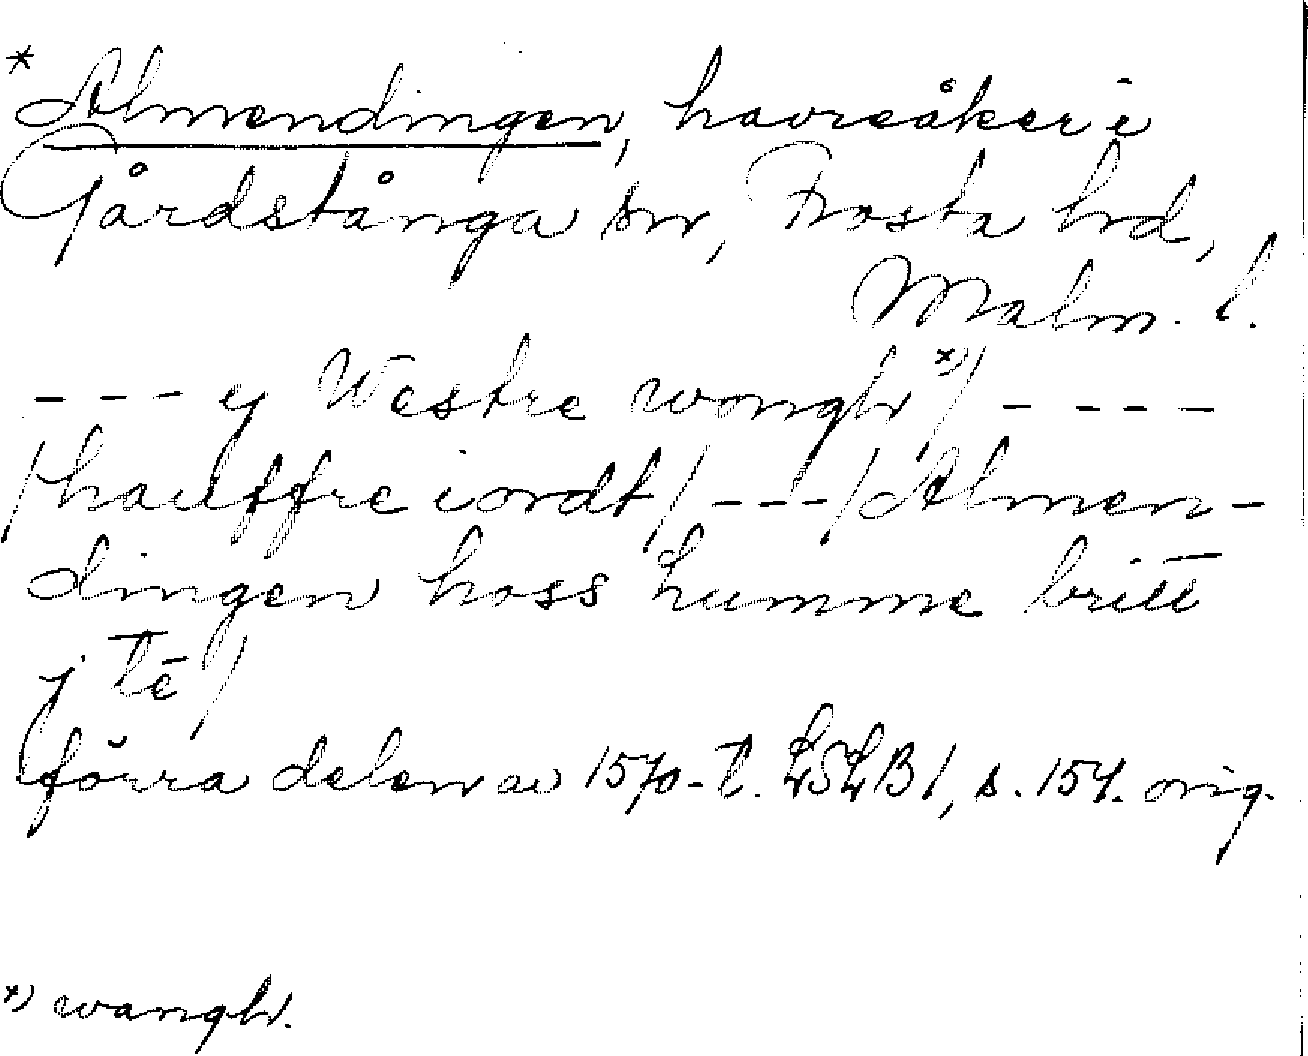 * Almendingen, havreåker i
Gårdstånga sn, Frosta hd,
Malm. l.
--- y Westre wongh *)/ ----
/hauffre iordt/ --- /Almen-
dingen hoss humme britē
j tē/
förra delen av 1570-t. LSLB 1, s. 154. orig.
*) wangh.